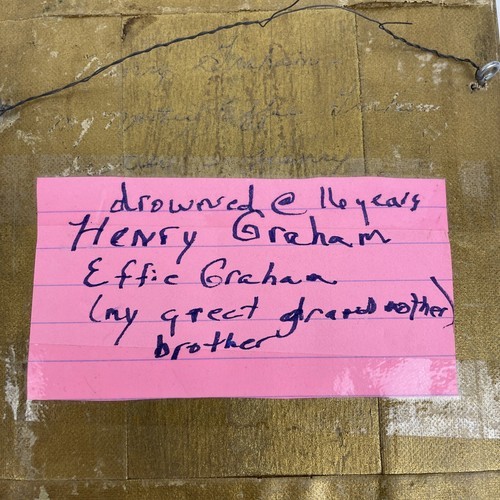 Graham
Effie Graham
Henry
drowned @ 16 years
Henry Graham
Effie Graham
(my great grand mother)
brother